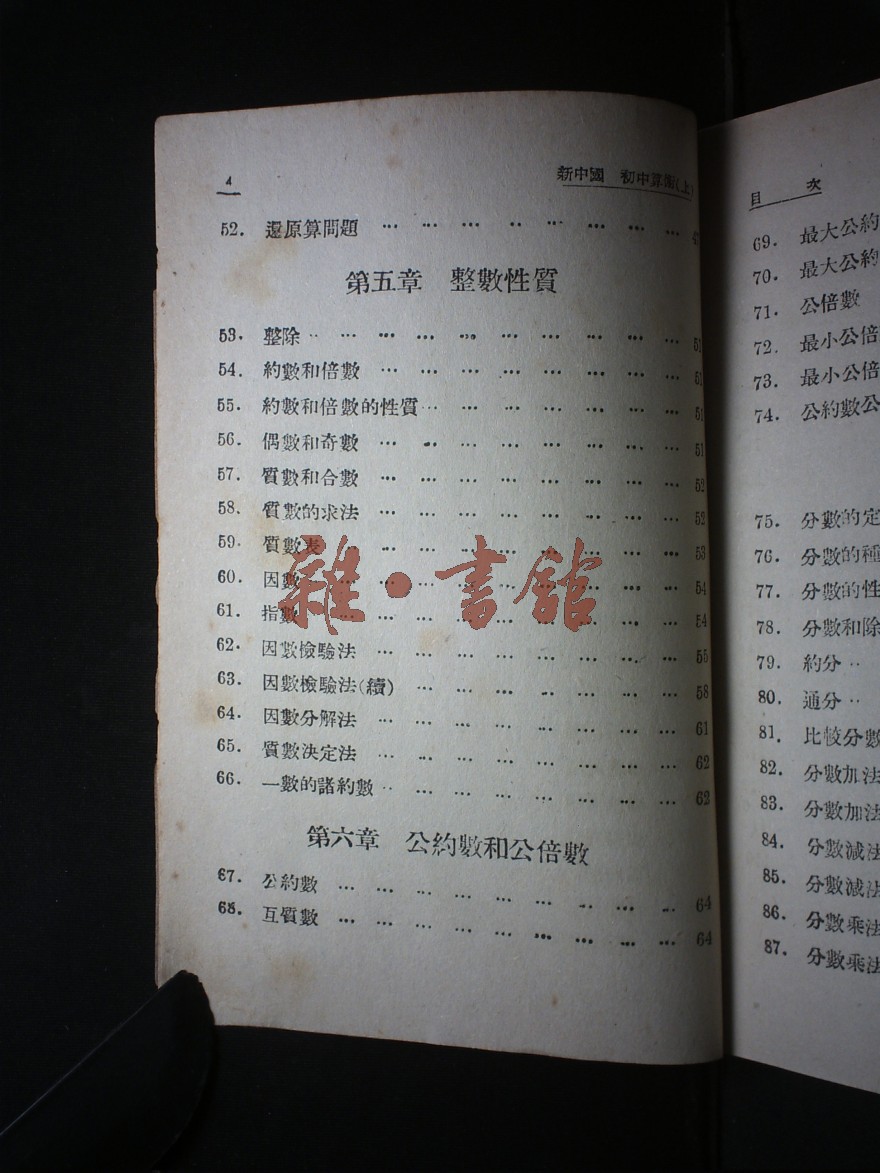 4
新中國 初中算術(上)
52. 還原算問題 … … … … … … … … …
第五章 整數性質
53. 整除 … … … … … … … … … … 51
54. 約數和倍數 … … … … … … … … 51
55. 約數和倍數的性質 … … … … … … … 51
56. 偶數和奇數 … … … … … … … … 51
57. 質數和合數 … … … … … … … … 52
58. 質數的求法 … … … … … … … … 52
59. 質數表 … … … … … … … … … 53
60. 因數 … … … … … … … … … 54
61. 指數 … … … … … … … … … 54
62. 因數檢驗法 … … … … … … … … 55
63. 因數檢驗法(續) … … … … … … … 58
64. 因數分解法 … … … … … … … … 61
65. 質數決定法 … … … … … … … … 62
66. 一數的諸約數 … … … … … … … … 62
第六章 公約數和公倍數
67. 公約數 … … … … … … … … … 64
68. 互質數 … … … … … … … … … 64
雜·書館
目 次
69. 最大公約
70. 最大公約
71. 公倍數
72. 最小公倍
73. 最小公倍
74. 公約數公
75. 分數的定
76. 分數的種
77. 分數的性
78. 分數和除
79. 約分 ··
80. 通分 ··
81. 比較分數
82. 分數加法
83. 分數加法
84. 分數減法
85. 分數減法
86. 分數乘法
87. 分數乘法